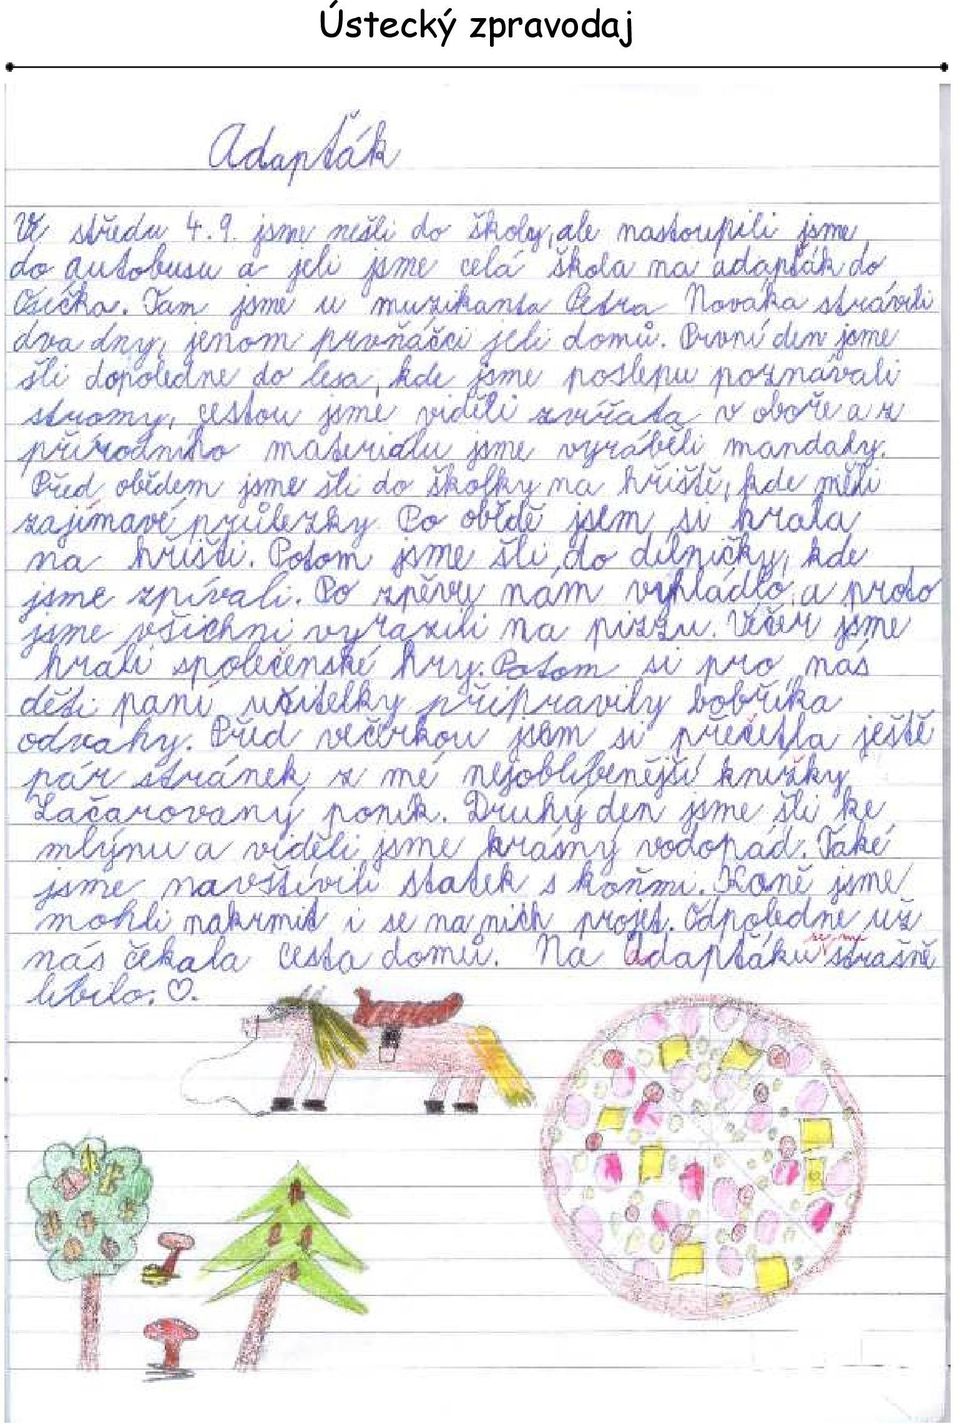 Ústecký zpravodaj
Adapťák
Ve středu 4.9. jsme nešli do školy, ale nastoupili jsme
do autobusu a jeli jsme celá škola na adapťák do
Osíčka. Tam jsme u muzikanta Petra Nováka strávili
dva dny, jenom prvňáčci jeli domů. První den jsme
šli dopoledne do lesa, kde jsme poslepu poznávali
stromy, cestou jsme viděli zvířata v oboře a z
přírodního materiálu jsme vyráběli mandaly.
Před obědem jsme šli do školky na hřiště, kde měli
zajímavé průlezky. Po obědě jsem si hrála
na hřišti. Potom jsme šli do dílničky, kde
jsme zpívali. Po zpěvu nám vyhládlo, a proto
jsme všichni vyrazili na pizzu. Večer jsme
hráli společenské hry. Potom si pro nás
děti paní učitelky připravily bobříka
odvahy. Před večerkou jsem si přečetla ještě
pár stránek z mé nejoblíbenější knížky
Začarovaný poník. Druhý den jsme šli ke
mlýnu a viděli jsme krásný vodopád. Také
jsme navštívili statek s koňmi. Koně jsme
mohli nakrmit i se na nich projet. Odpoledne už
nás čekala cesta domů. Na Adapťáku se mi strašně
líbilo. ♡.